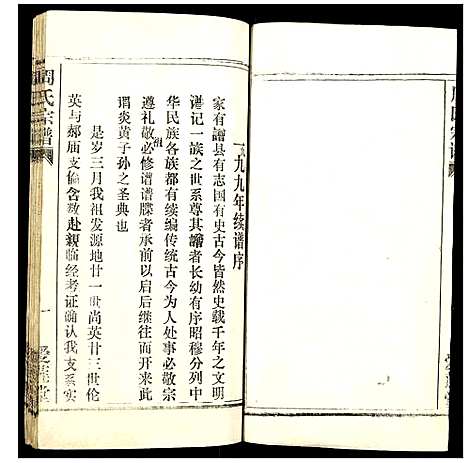 一九九九年续谱序
家有谱县有志国有史古今皆然史载千年之文明
谱记一族之世系尊其谱者长幼有序昭穆分列中
华民族各族都有续编传统古今为人处事必敬宗
遵礼敬祖必修谱谱牒者承前以启后继往而开来此
谓炎黄子孙之圣典也
是岁三月我祖发源地廿一世尚英廿三世伦
英与郝庙支脩含数赴亲临经考证确认我支系实
周氏宗谱
一
爱莲堂